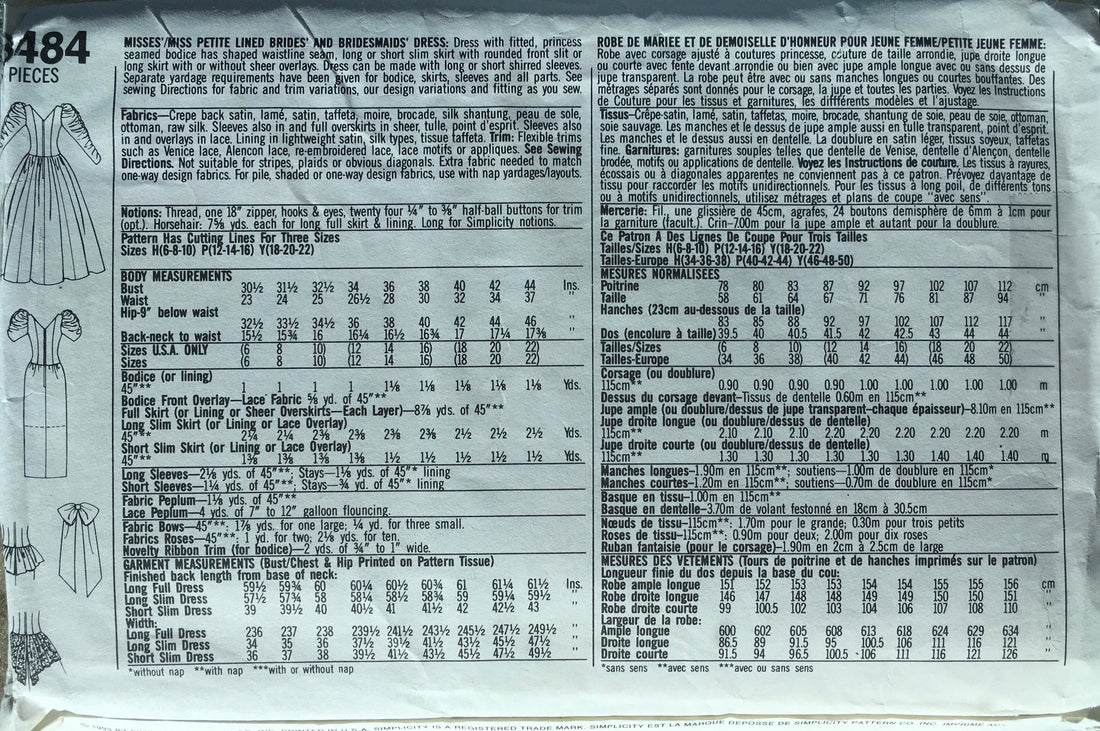 8484
PIECES
MISSES'/MISS PETITE LINED BRIDES' AND BRIDESMAIDS' DRESS: Dress with fitted, princess
seamed bodice has shaped waistline seam, long or short slim skirt with rounded front slit or
long skirt with or without sheer overlays. Dress can be made with long or short shirred sleeves.
Separate yardage requirements have been given for bodice, skirts, sleeves and all parts. See
sewing Directions for fabric and trim variations, our design variations and fitting as you sew.
Fabrics—Crepe back satin, lamé, satin, taffeta, moire, brocade, silk shantung, peau de sole,
ottoman, raw silk. Sleeves also in and full overskirts in sheer, tulle, point d'esprit. Sleeves also
in and overlays in lace. Lining in lightweight satin, silk types, tissue taffeta. Trim: Flexible trims
such as Venice lace, Alencon lace, re-embroidered lace, lace motifs or appliques. See Sewing
Directions. Not suitable for stripes, plaids or obvious diagonals. Extra fabric needed to match
one-way design fabrics. For pile, shaded or one-way design fabrics, use with nap yardages/layouts.
Notions: Thread, one 18" zipper, hooks & eyes, twenty four ¼" to ⅜" half-ball buttons for trim
(opt.). Horsehair: 7⅝ yds. each for long full skirt & lining. Long for Simplicity notions.
Pattern Has Cutting Lines For Three Sizes
Sizes H(6-8-10) P(12-14-16) Y(18-20-22)
BODY MEASUREMENTS
Bust 30½ 31½ 32½ 34 36 38 40 42 44 Ins.
Waist 23 24 25 26½ 28 30 32 34 37 "
Hip-9" below waist
32½ 33½ 34½ 36 38 40 42 44 46 "
Back-neck to waist 15½ 15¾ 16 16¼ 16½ 16¾ 17 17¼ 17⅜ "
Sizes U.S.A. ONLY (6 8 10) (12 14 16) (18 20 22)
Sizes (6 8 10) (12 14 16) (18 20 22)
Bodice (or lining)
45"** 1 1 1 1 1⅛ 1⅛ 1⅛ 1⅛ 1⅛ Yds.
Bodice Front Overlay—Lace Fabric ⅝ yd. of 45"**
Full Skirt (or Lining or Sheer Overskirts—Each Layer)—8⅞ yds. of 45"**
Long Slim Skirt (or Lining or Lace Overlay)
45"** 2¼ 2¼ 2⅜ 2⅜ 2⅜ 2⅜ 2½ 2½ 2½ Yds.
Short Slim Skirt (or Lining or Lace Overlay)
45"** 1⅜ 1⅜ 1⅜ 1⅜ 1½ 1½ 1½ 1½ 1½ Yds.
Long Sleeves—2⅛ yds. of 45"**. Stays—1⅛ yds. of 45"* lining
Short Sleeves—1¼ yds. of 45"**; Stays—¾ yd. of 45"* lining
Fabric Peplum—1⅛ yds. of 45"**
Lace Peplum—4 yds. of 7" to 12" galloon flouncing.
Fabric Bows—45"**: 1⅞ yds. for one large; ¼ yd. for three small.
Fabrics Roses—45"**: 1 yd. for two; 2⅛ yds. for ten.
Novelty Ribbon Trim (for bodice)—2 yds. of ¾" to 1" wide.
GARMENT MEASUREMENTS (Bust/Chest & Hip Printed on Pattern Tissue)
Finished back length from base of neck:
Long Full Dress 59½ 59¾ 60 60¼ 60½ 60¾ 61 61¼ 61½ Ins.
Long Slim Dress 57½ 57¾ 58 58¼ 58½ 58¾ 59 59¼ 59½ "
Short Slim Dress 39 39½ 40 40½ 41 41½ 42 42½ 43 "
Width:
Long Full Dress 236 237 238 239½ 241½ 243½ 245½ 247½ 249½ "
Long Slim Dress 34 35 36 37½ 39½ 41½ 43½ 45½ 47½ "
Short Slim Dress 36 37 38 39½ 41½ 43½ 45½ 47½ 49½ "
*without nap **with nap ***with or without nap
ROBE DE MARIEE ET DE DEMOISELLE D'HONNEUR POUR JEUNE FEMME/PETITE JEUNE FEMME:
Robe avec corsage ajusté à coutures princesse, couture de taille arrondie, jupe droite longue
ou courte avec fente devant arrondie ou bien avec jupe ample longue avec ou sans dessus de
jupe transparent. La robe peut être avec ou sans manches longues ou courtes bouffantes. Des
métrages séparés sont donnés pour le corsage, la jupe et toutes les parties. Voyez les Instructions
de Couture pour les tissus et garnitures, les diffférents modèles et l'ajustage.
Tissus—Crêpe-satin, lamé, satin, taffetas, moire, brocade, shantung de soie, peau de soie, ottoman,
soie sauvage. Les manches et le dessus de jupe ample aussi en tulle transparent, point d'esprit.
Les manches et le dessus aussi en dentelle. La doublure en satin léger, tissus soyeux, taffetas
fine. Garnitures: garnitures souples telles que dentelle de Venise, dentelle d'Alençon, dentelle
brodée, motifs ou applications de dentelle. Voyez les Instructions de couture. Les tissus à rayures,
écossais ou à diagonales apparentes ne conviennent pas à ce patron. Prévoyez davantage de
tissu pour raccorder les motifs unidirectionnels. Pour les tissus à long poil, de différents tons
ou à motifs unidirectionnels, utilisez métrages et plans de coupe "avec sens".
Mercerie: Fil, une glissière de 45cm, agrafes, 24 boutons demisphère de 6mm à 1cm pour
la garniture (facult.). Crin—7.00m pour la jupe ample et autant pour la doublure.
Ce Patron A Des Lignes De Coupe Pour Trois Tailles
Tailles/Sizes H(6-8-10) P(12-14-16) Y(18-20-22)
Tailles-Europe H(34-36-38) P(40-42-44) Y(46-48-50)
MESURES NORMALISEES
Poitrine 78 80 83 87 92 97 102 107 112 cm
Taille 58 61 64 67 71 76 81 87 94 "
Hanches (23cm au-dessous de la taille)
83 85 88 92 97 102 107 112 117 "
Dos (encolure à taille) 39.5 40 40.5 41.5 42 42.5 43 44 44 "
Tailles/Sizes (6 8 10) (12 14 16) (18 20 22)
Tailles-Europe (34 36 38) (40 42 44) (46 48 50)
Corsage (ou doublure)
115cm** 0.90 0.90 0.90 0.90 1.00 1.00 1.00 1.00 1.00 m
Dessus du corsage devant—Tissus de dentelle 0.60m en 115cm**
Jupe ample (ou doublure/dessus de jupe transparent—chaque épaisseur)—8.10m en 115cm**
Jupe droite longue (ou doublure/dessus de dentelle)
115cm** 2.10 2.10 2.10 2.20 2.20 2.20 2.20 2.20 2.20 m
Jupe droite courte (ou doublure/dessus de dentelle)
115cm** 1.30 1.30 1.30 1.30 1.30 1.30 1.40 1.40 1.40 m
Manches longues—1.90m en 115cm**; soutiens—1.00m de doublure en 115cm*
Manches courtes—1.20m en 115cm**; soutiens—0.70m de doublure en 115cm*
Basque en tissu—1.00m en 115cm**
Basque en dentelle—3.70m de volant festonné en 18cm à 30.5cm
Nœuds de tissu—115cm**: 1.70m pour le grande; 0.30m pour trois petits
Roses de tissu—115cm**: 0.90m pour deux; 2.00m pour dix roses
Ruban fantaisie (pour le corsage)—1.90m en 2cm à 2.5cm de large
MESURES DES VETEMENTS (Tours de poitrine et de hanches imprimés sur le patron)
Longueur finie du dos depuis la base du cou:
Robe ample longue 151 152 153 153 154 154 155 155 156 cm
Robe droite longue 146 147 148 148 149 149 150 150 151 "
Robe droite courte 99 100.5 102 103 104 106 107 108 110 "
Largeur de la robe:
Ample longue 600 602 605 608 613 618 624 629 634 "
Droite longue 86.5 89 91.5 95 100.5 106 111 116 121 "
Droite courte 91.5 94 96.5 100.5 106 111 116 121 126 "
*sans sens **avec sens ***avec ou sans sens
PRINTED IN U.S.A. SIMPLICITY IS A REGISTERED TRADE MARK. SIMPLICITY EST LA MARQUE DEPOSSE DE SIMPLICITY PATTERN CO. INC. IMPRIME